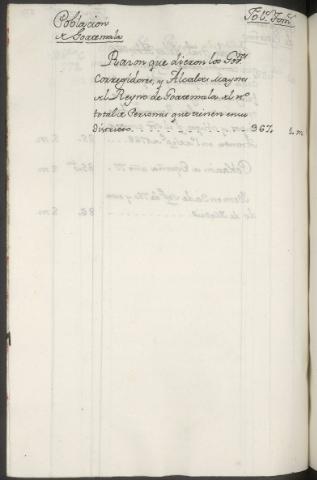 Poblacion
de Goatemala
Fol.s Tom.s
Razon que dieron los Gov.res
Corregidores, y Alcaldes mayores
del Reyno de Goatemala del n.o
total de Personas que tienen en su
Districto. . . . . . . . . 367.
2. m.